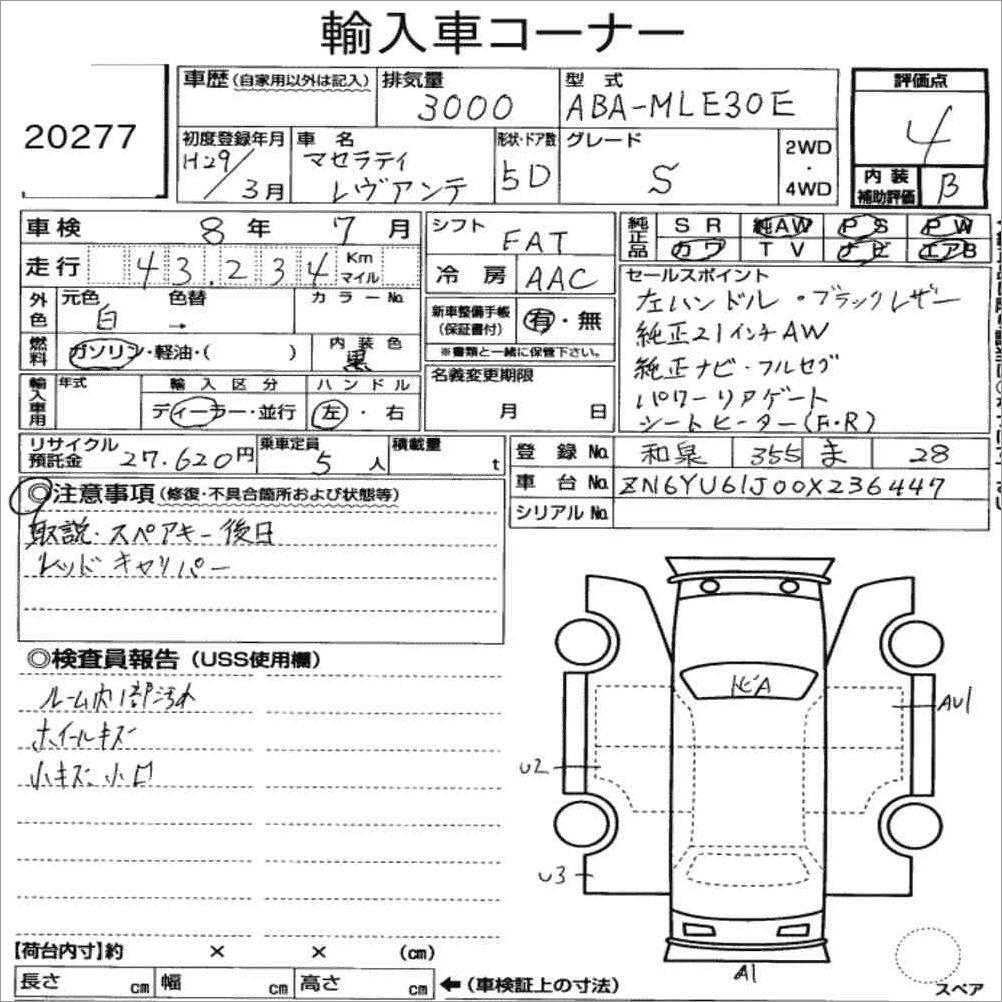 輸入車コーナー
20277
車歴(自家用以外は記入)
排気量 3000
型式 ABA-MLE30E
評価点 4
内装補助評価 B
初度登録年月 H29/3月
車名 マセラティ レヴァンテ
形状・ドア数 5D
グレード S
2WD・4WD
車検 8年 7月
走行 43.234 Km マイル
外色 元色 白 色替 → カラーNo.
燃料 ガソリン・軽油・( ) 内装色 黒
輸入車用 年式 輸入区分 ディーラー・並行 ハンドル 左・右
リサイクル預託金 27.620円 乗車定員 5人 積載量 t
シフト FAT
冷房 AAC
新車整備手帳(保証書付) 有・無
※書類と一緒に保管下さい。
名義変更期限 月 日
純正品 SR 純AW PS PW
カワ TV ナビ エアB
セールスポイント
左ハンドル ・ブラックレザー
純正21インチAW
純正ナビ・フルセグ
パワーリアゲート
シートヒーター(F・R)
登録No. 和泉 355 ま 28
車台No. ZN6YU61J00X236447
シリアルNo.
◎注意事項(修復・不具合箇所および状態等)
取説・スペアキー後日
レッドキャリパー
◎検査員報告(USS使用欄)
ルーム内1部汚れ
ホイールキズ
小キズ 小凹
トビA
AU1
U2
U3
A1
スペア
【荷台内寸】約 × × (cm)
長さ cm 幅 cm 高さ cm ←(車検証上の寸法)